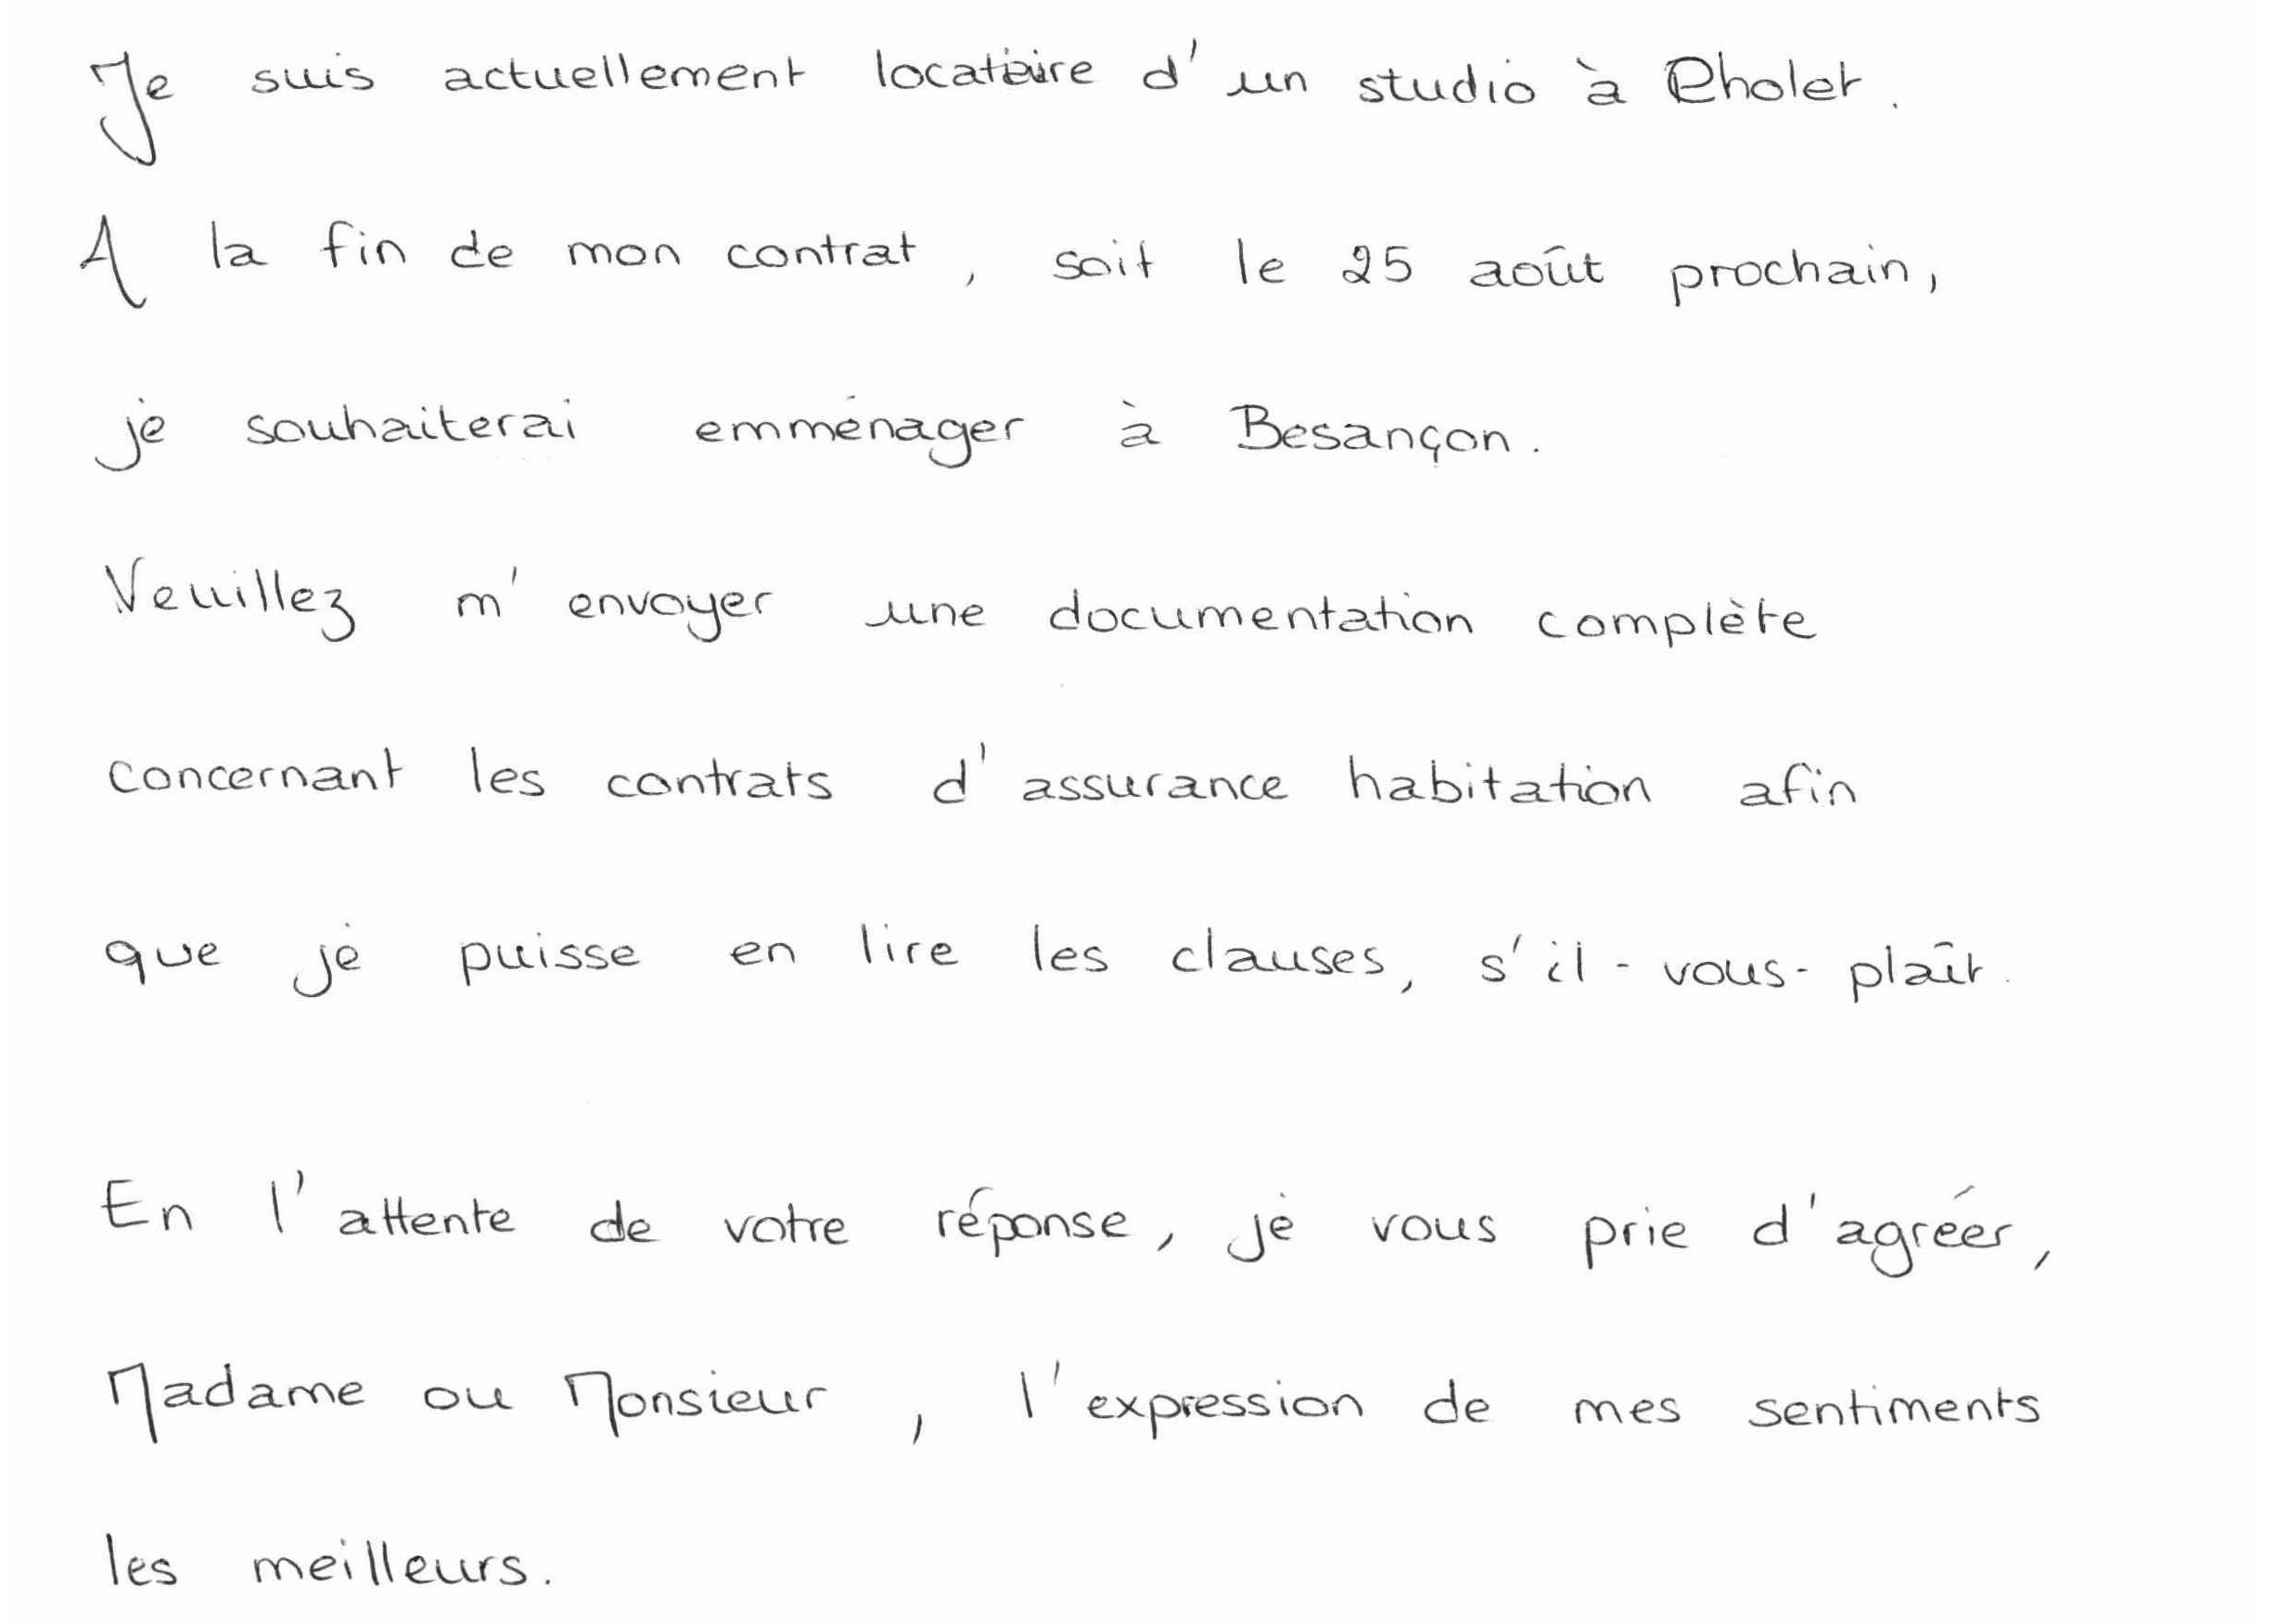 Je suis actuellement locataire d'un studio à Cholet.
A la fin de mon contrat, soit le 25 août prochain,
je souhaiterai emménager à Besançon.
Veuillez m'envoyer une documentation complète
concernant les contrats d'assurance habitation afin
que je puisse en lire les clauses, s'il-vous-plaît.
En l'attente de votre réponse, je vous prie d'agréer,
Madame ou Monsieur, l'expression de mes sentiments
les meilleurs.